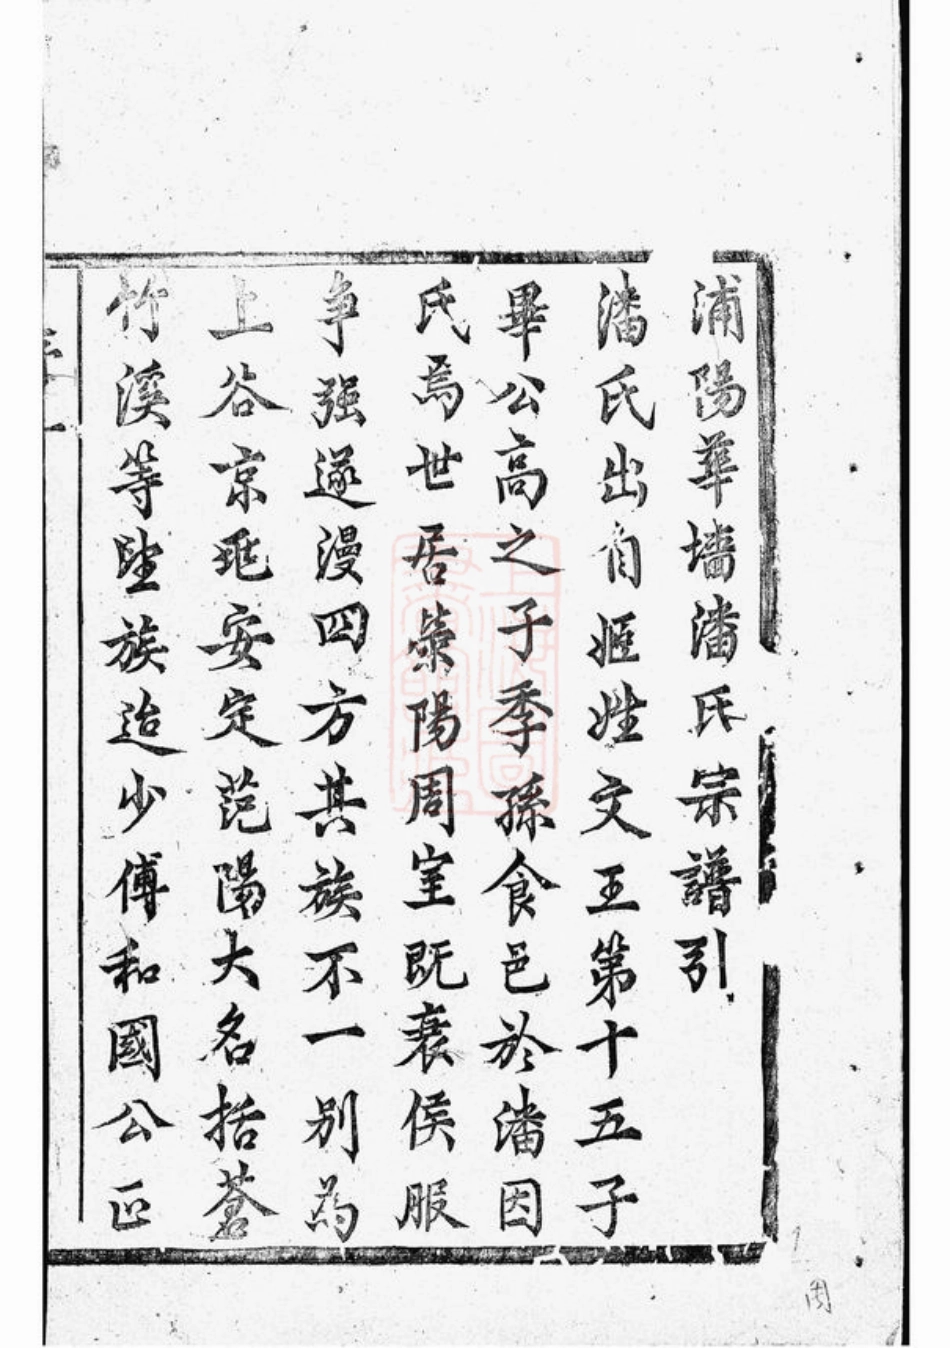 浦陽華墻潘氏宗譜引
潘氏出自姬姓文王第十五子
畢公高之子季孫食邑於潘因
氏焉世居滎陽周室既衰侯服
争强遂漫四方其族不一別為
上谷京兆安定范陽大名括蒼
竹溪等望族迨少傅和國公正